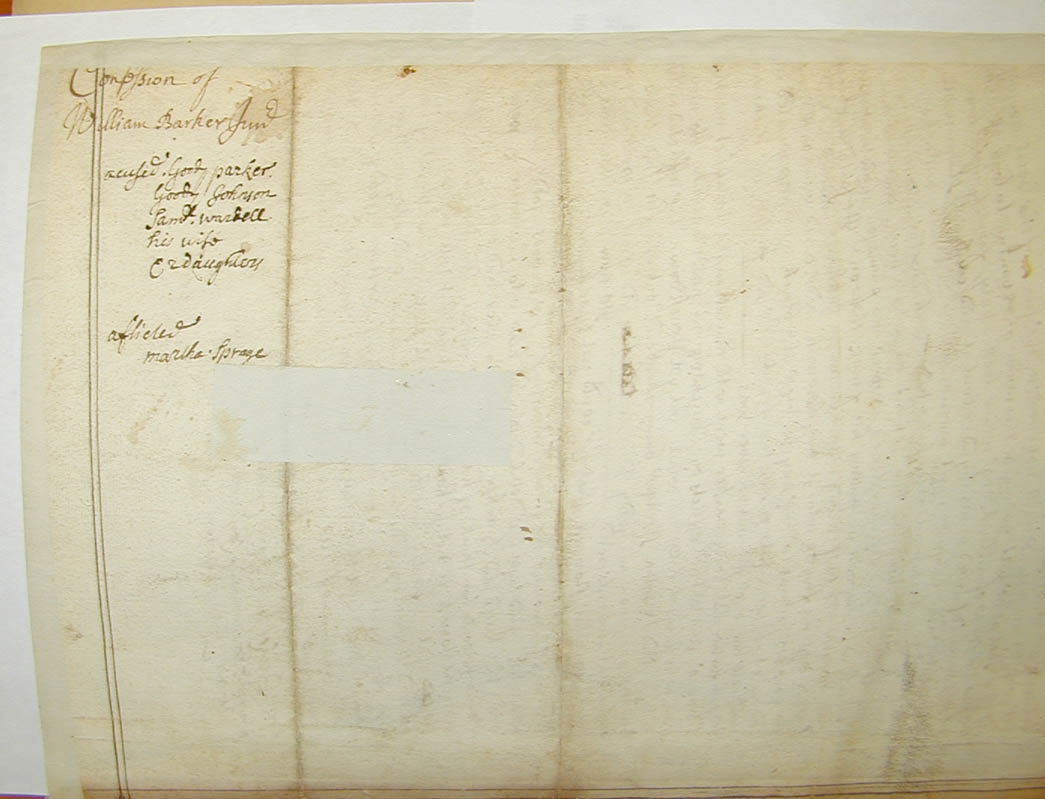 Confession of
William Barker Junr
acused. Goody parker.
Goody Johnson
Saml. wardell.
his wife
& 2 daughters
aflicted
martha. Sprage